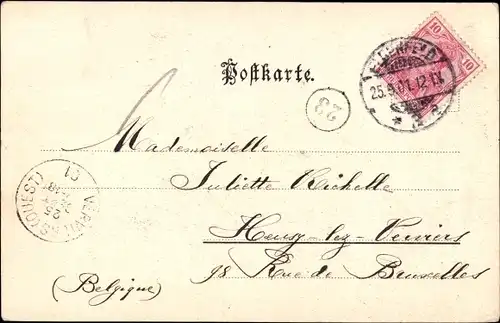 10 10
ELBERFELD
25.5.01.12-1N.
Postkarte.
23
Mademoiselle
Juliette
Heusy-lez-Verviers
98 Rue de Bruxelles
(Belgique)
VERVIERS (OUEST)
25
01